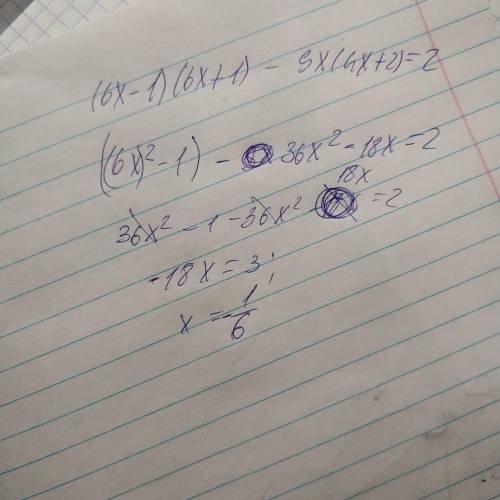 (6x-1)(6x+1) - 9x(4x+2)=2
((6x)²-1) - 36x²-18x=2
36x²-1-36x² 18x =2
-18x=3;
x=-1/6